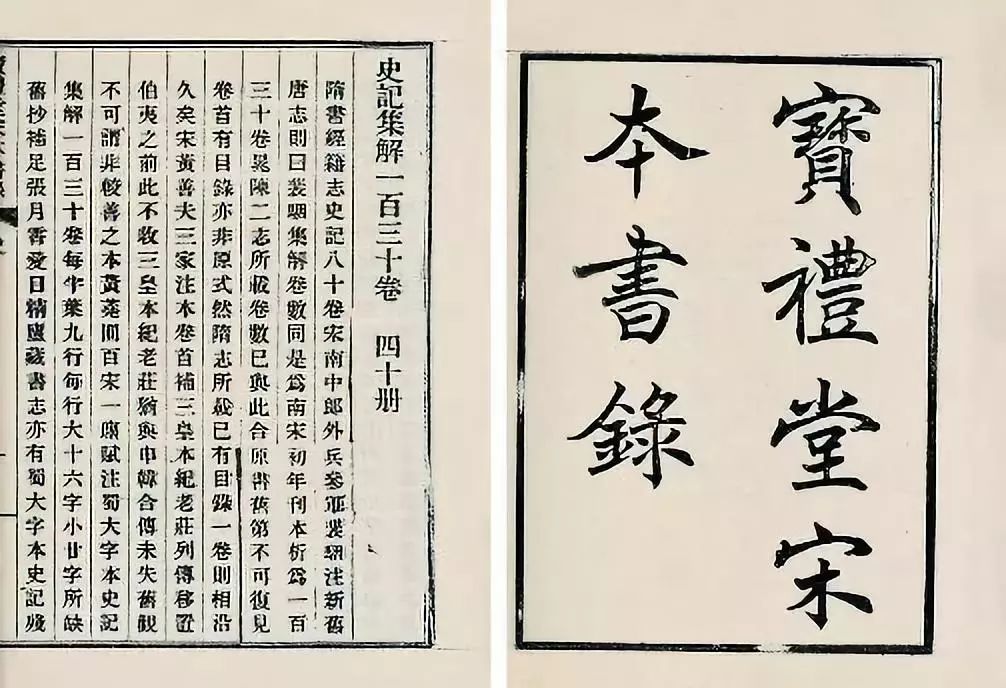 寶禮堂宋
本書錄
史記集解一百三十卷 四十册
隋書經籍志史記八十卷宋南中郎外兵參軍裴駰注新舊
唐志則曰裴駰集解卷數同是爲南宋初年刊本析爲一百
三十卷晁陳二志所載卷數已與此合原書舊第不可復見
卷首有目錄亦非原式然隋志所載已有目錄一卷則相沿
久矣宋黃善夫三家注本卷首補三皇本紀老莊列傳移置
伯夷之前此不收三皇本紀老莊猶與申韓合傳未失舊觀
不可謂非較善之本黃蕘圃百宋一廛賦注蜀大字本史記
集解一百三十卷每半葉九行每行大十六字小廿字所缺
舊抄補足張月霄愛日精廬藏書志亦有蜀大字本史記殘